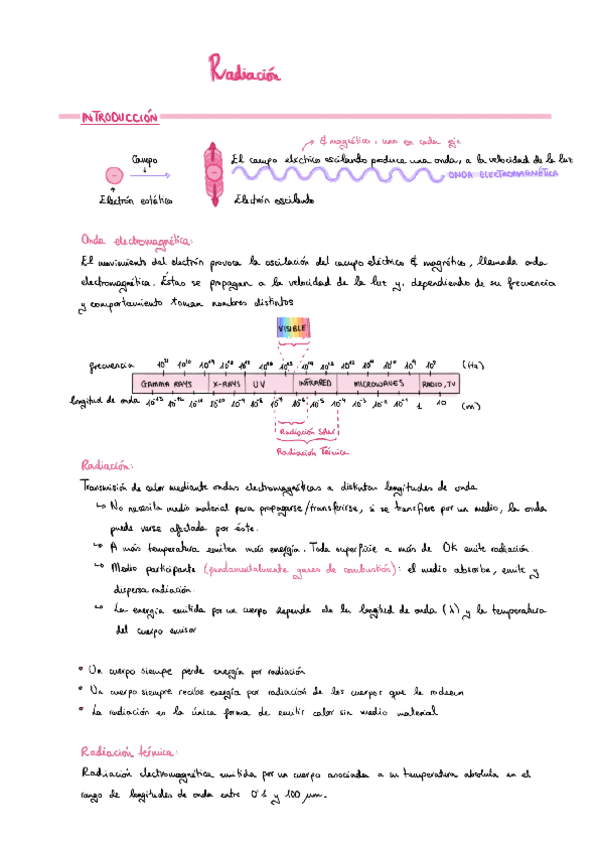 Radiación
INTRODUCCIÓN
& magnético, uno en cada eje
Campo
El campo eléctrico oscilando produce una onda, a la velocidad de la luz
ONDA ELECTROMAGNÉTICA
Electrón estático
Electrón oscilando
Onda electromagnética:
El movimiento del electrón provoca la oscilación del campo eléctrico & magnético, llamada onda
electromagnética. Éstas se propagan a la velocidad de la luz y, dependiendo de su frecuencia
y comportamiento toman nombres distintos
VISIBLE
frecuencia (Hz)
GAMMA RAYS X-RAYS UV INFRARED MICROWAVES RADIO, TV
longitud de onda 1 10 (m)
Radiación Solar
Radiación Térmica
Radiación:
Transmisión de calor mediante ondas electromagnéticas a distintas longitudes de onda
↳ No necesita medio material para propagarse/transferirse, si se transfiere por un medio, la onda
puede verse afectada por éste.
↳ A más temperatura emiten más energía. Toda superficie a más de 0k emite radiación.
↳ Medio participante (fundamentalmente gases de combustión): el medio absorbe, emite y
dispersa radiación
↳ La energía emitida por un cuerpo depende de la longitud de onda (λ) y la temperatura
del cuerpo emisor
* Un cuerpo siempre pierde energía por radiación
* Un cuerpo siempre recibe energía por radiación de los cuerpos que le rodean
* La radiación en la única forma de emitir calor sin medio material
Radiación térmica:
Radiación electromagnética emitida por un cuerpo asociada a su temperatura absoluta en el
rango de longitudes de onda entre 0'1 y 100 μm.